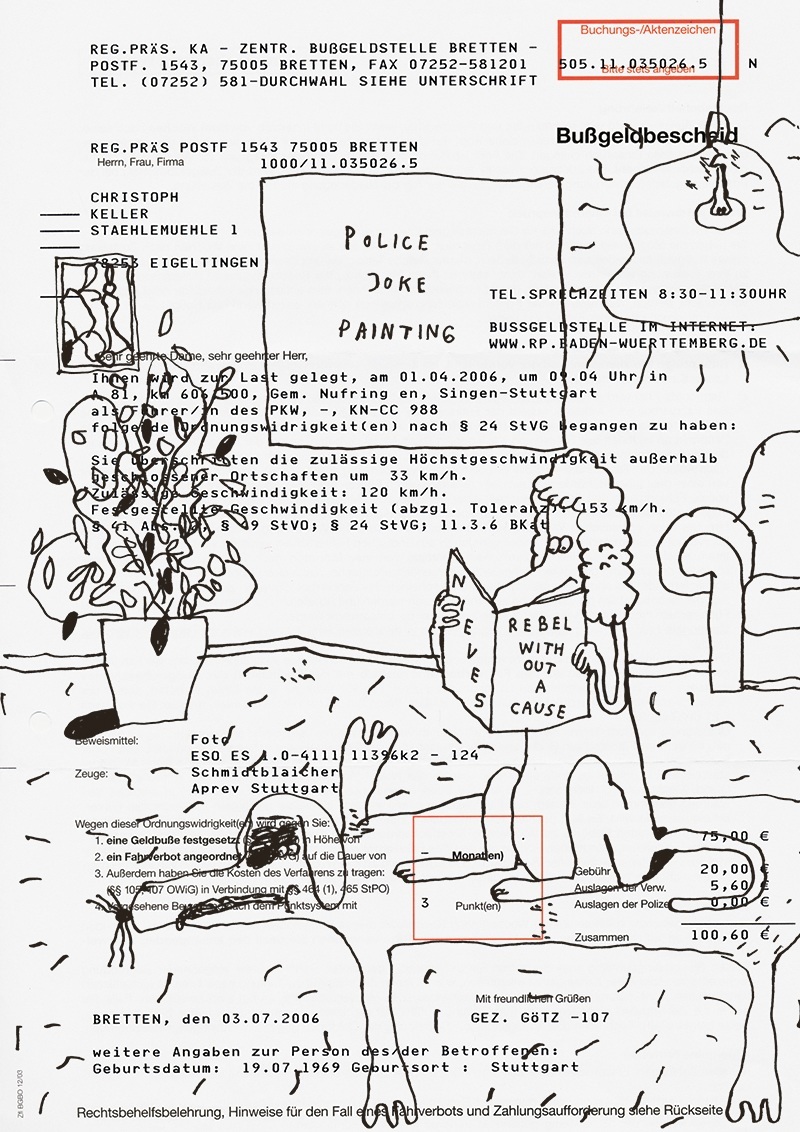 REG.PRÄS. KA - ZENTR. BUßGELDSTELLE BRETTEN -
POSTF. 1543, 75005 BRETTEN, FAX 07252-581201
TEL. (07252) 581-DURCHWAHL SIEHE UNTERSCHRIFT
Buchungs-/Aktenzeichen
505.11.035026.5 N
Bitte stets angeben
Bußgeldbescheid
REG.PRÄS POSTF 1543 75005 BRETTEN
Herrn, Frau, Firma 1000/11.035026.5
CHRISTOPH
KELLER
STAEHLEMUEHLE 1
78253 EIGELTINGEN
POLICE
JOKE
PAINTING
TEL.SPRECHZEITEN 8:30-11:30UHR
BUSSGELDSTELLE IM INTERNET:
WWW.RP.BADEN-WUERTTEMBERG.DE
Sehr geehrte Dame, sehr geehrter Herr,
Ihnen wird zur Last gelegt, am 01.04.2006, um 09.04 Uhr in
A 81, km 606,500, Gem. Nufring en, Singen-Stuttgart
als Führer/in des PKW, -, KN-CC 988
folgende Ordnungswidrigkeit(en) nach § 24 StVG begangen zu haben:
Sie überschritten die zulässige Höchstgeschwindigkeit außerhalb
geschlossener Ortschaften um 33 km/h.
Zulässige Geschwindigkeit: 120 km/h.
Festgestellte Geschwindigkeit (abzgl. Toleranz): 153 km/h.
§ 41 Abs. 2, § 49 StVO; § 24 StVG; 11.3.6 BKat
NIEVES
REBEL
WITH
OUT
A
CAUSE
Beweismittel: Foto
ESO ES 1.0-4111 11396k2 - 124
Zeuge: Schmidtblaicher
Aprev Stuttgart
Wegen dieser Ordnungswidrigkeit(en) wird gegen Sie:
1. eine Geldbuße festgesetzt in Höhe von 75,00 €
2. ein Fahrverbot angeordnet auf die Dauer von – Monat(en)
3. Außerdem haben Sie die Kosten des Verfahrens zu tragen: Gebühr 20,00 €
(§§ 105, 107 OWiG) in Verbindung mit §§ 464 (1), 465 StPO) Auslagen der Verw. 5,60 €
4. Vorgesehene nach dem Punktsystem mit 3 Punkt(en) Auslagen der Polizei 0,00 €
Zusammen 100,60 €
Mit freundlichen Grüßen
BRETTEN, den 03.07.2006 GEZ. GöTZ -107
weitere Angaben zur Person des/der Betroffenen:
Geburtsdatum: 19.07.1969 Geburtsort : Stuttgart
ZfI BGBO 12/03
Rechtsbehelfsbelehrung, Hinweise für den Fall eines Fahrverbots und Zahlungsaufforderung siehe Rückseite